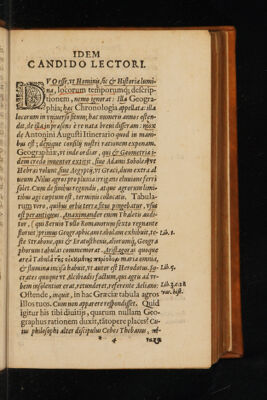 IDEM
CANDIDO LECTORI.
DVO esse, vt Hominis, sic & Historiæ lumi-
na, locorum temporumq; descrip-
tionem, nemo ignorat: illa Geogra-
phia; hæc Chronologia appellata: illa
locorum in vniuerso situm; hæc numeru annos osten-
dat, de illa in præsens è re nata breui disseram: mox
de Antonini Augusti Itinerario quod in manibus
est; denique consilij nostri rationem expenam.
Geographia, vt inde ordiar, qui & Geometria i-
dem credo inuentor extitit, siue Adams Soboles vt
Hebræi volunt, siue Aegyptij, vt Græci, dum extra al-
ueum Nilus agros prolunnia irrigans eluuiem fterä
solet. Cum de finibus regendu, at que agrorum limi-
tibus agi ceptum est, terminos collocatis. Tabula-
rum vero, quibus orbis terræ situs pingebatur, vsus
est per antiquus. Anaximander enim Thaletis audi-
tor, (qui Seruio Tullo Romanorum sexto regnante
floruit) primus Geographicam tabulam exhibuit, te-
ste Strabone, qui & Eratosthenis, aliorumq; Geogra-
phorum tabulas commemorat. Aristagoras quoque
area Tabula maria omnia,
& flumina incisa habuit, vt autor est Herodotus. So-
crates quoque vt Alcibiadis fastum, qui agris ad va-
nem insolentiam erat, retunderet, referente Aeliano;
Ostende, inquit, in hac Græcia tabula agros
illos tuos. Cum non apparere respondisset. Quid
igitur his tibi diuitijs, quarum nullam Geo-
graphus rationem duxit, tātopere places? Cu-
ius philosophi alter discipulus Cebes Thebanus,
Lib. 1.
Lib. 5.
Lib. 3. c. 28
var. hist.